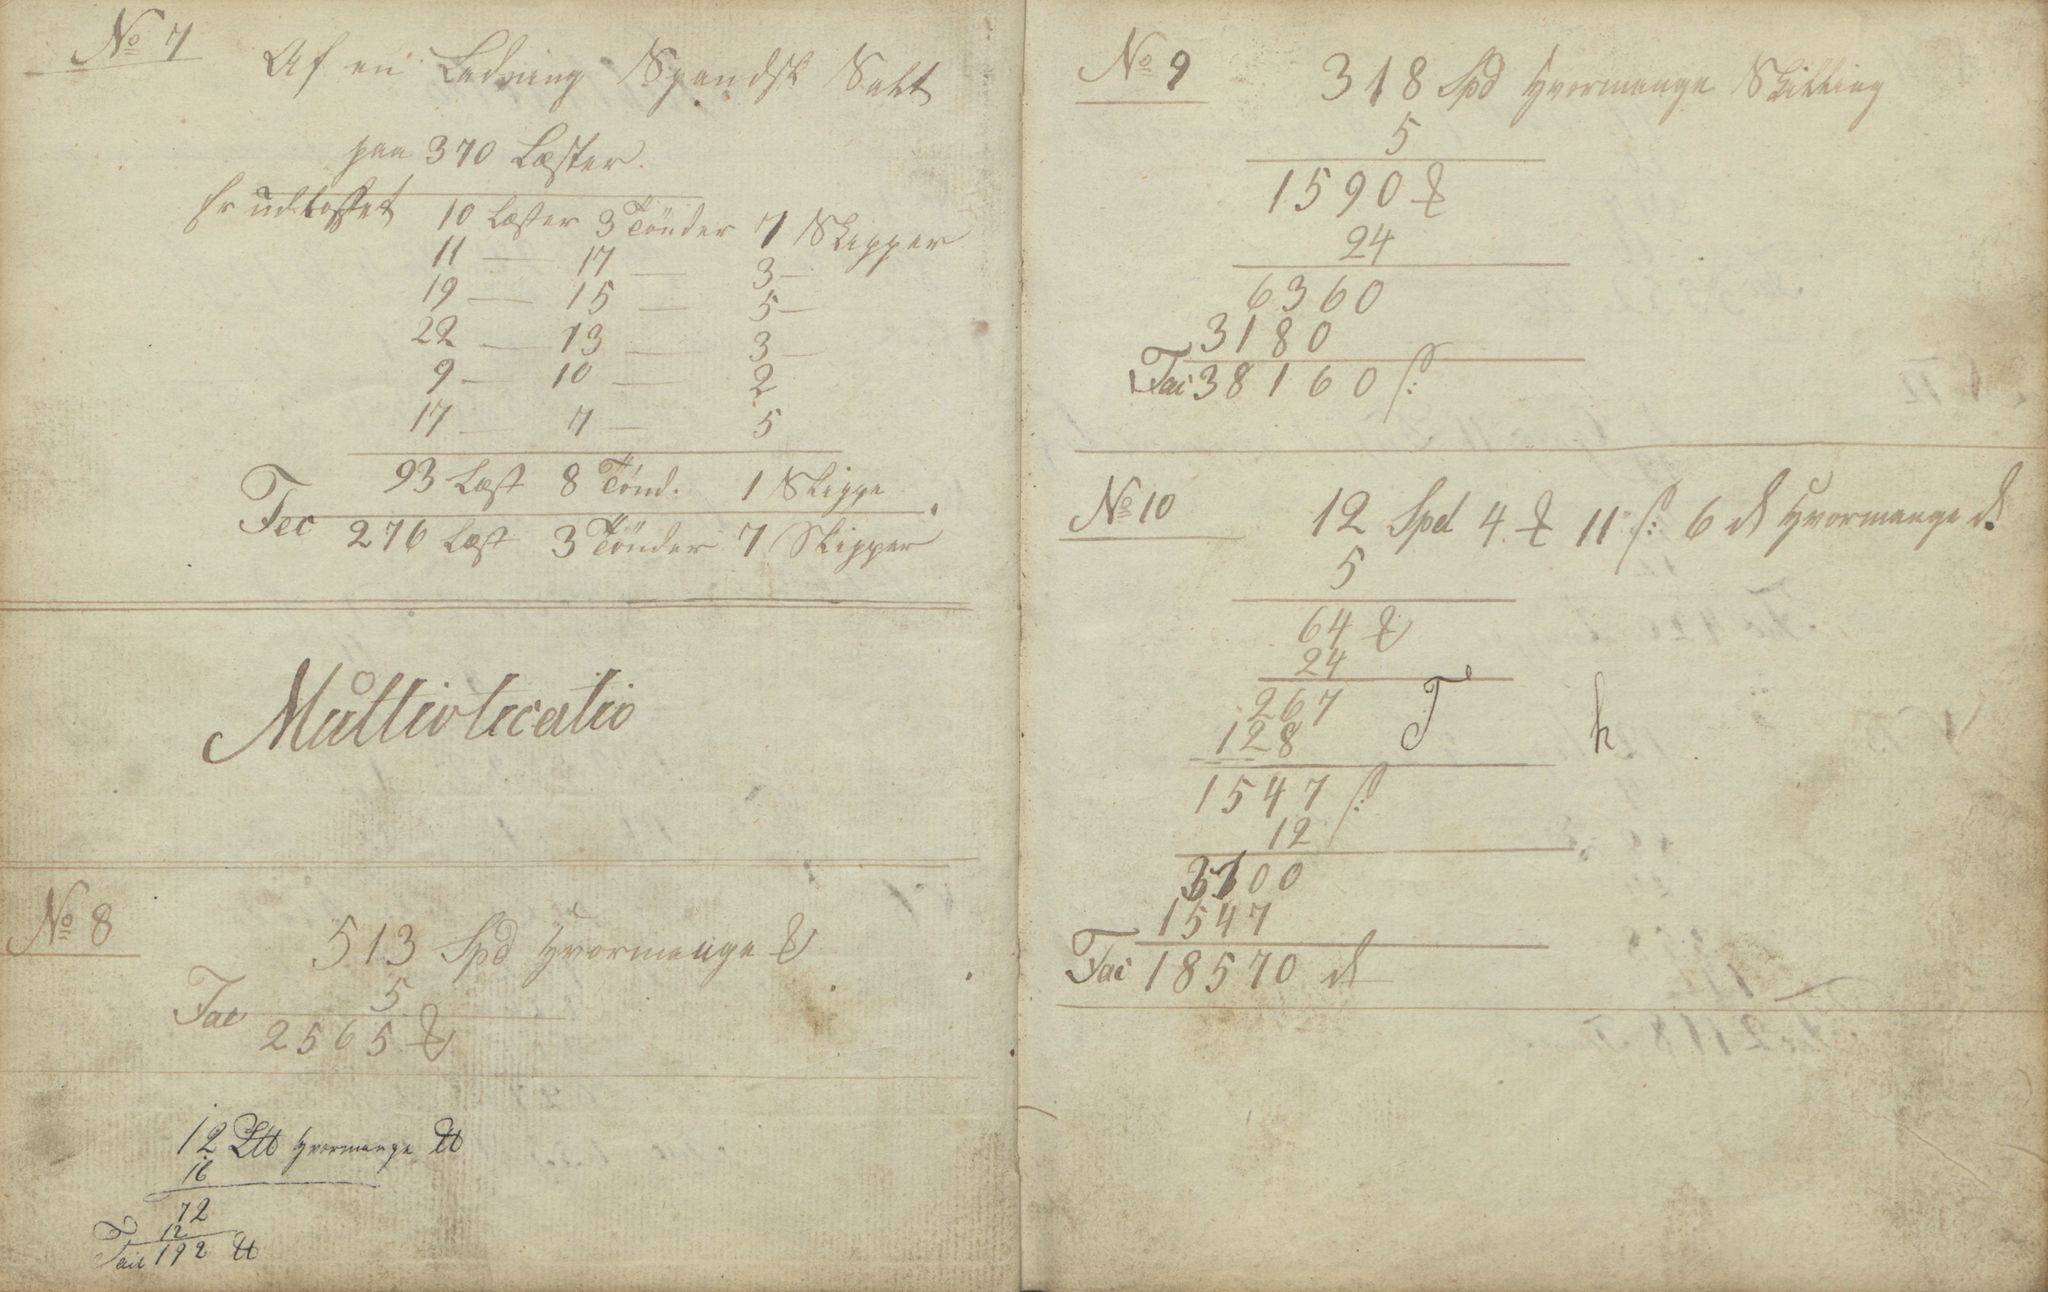 No 7
Af en Ladning Spandsk Salt
paa 370 Læster.
Er udlosset 10 Læster 3 Tönder 7 Skipper
11 — 17 — 3 —
19 — 15 — 5 —
22 — 13 — 3 —
9 — 10 — 2
17 — 7 — 5
93 Læst 8 Tönd. 1 Skippe
Fec 276 Læst 3 Tönder 7 Skipper
Multiplicatio
No 8
513 Spd Hvormange
5
Fac 2565
12 Hvormange
16
72
12
Faci 192
No 9
318 Spd Hvormange Skilling
5
1590
24
6360
3180
Fac 38160 ß:
No 10
12 Spd 4 11 ß: 6 d Hvormange d
5
64
24
267 T h
128
1547 ß:
12
3100
1547
Fac 18570 d